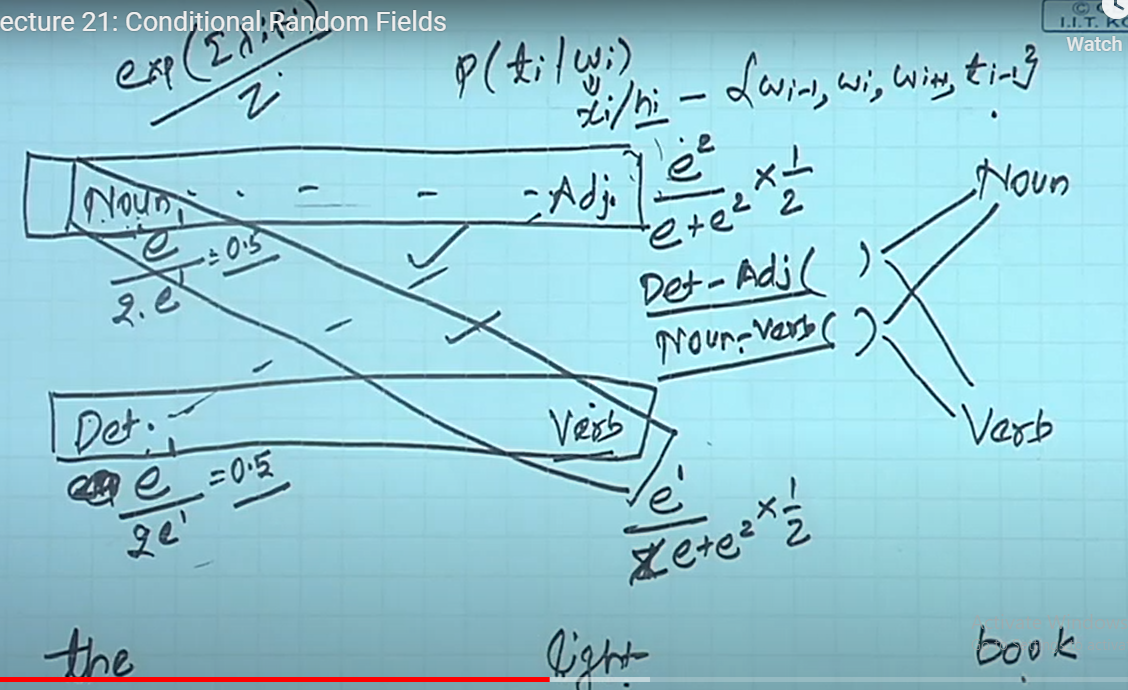 ecture 21: Conditional Random Fields
I.I.T. K
Watch
exp(Σλifi)/Z
P(ti/wi)
xi/hi - {wi-1, wi, wi+1, ti-1}
Noun - - - Adj.
e^1/2.e^1 = 0.5
e^2/e+e^2 × 1/2
Noun
Det-Adj( )
Noun-Verb( )
Det. Verb
Verb
e^1/2e^1 = 0.5
e^1/e+e^2 × 1/2
the light book